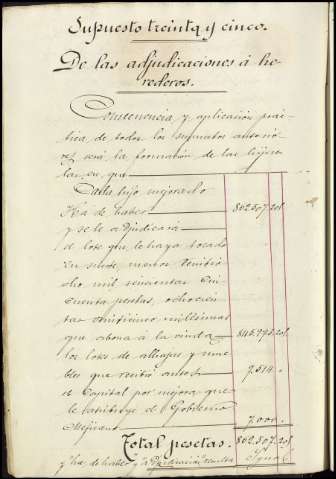 Supuesto treinta y cinco.
De las adjudicaciones á he-
rederos.
Consecuencia y aplicación prác-
tica de todos los supuestos anterio-
res será la formación de las hijue-
las, en que
Cada hijo mejorado
Ha de haber 802.507,201
y se le adjudicará
el lote que le haya tocado
en suerte, menos veintio-
cho mil seiscientas cin-
cuenta pesetas, ochocien-
tas veinticinco milésimas
que abona á la viuda
los lotes de alhajas y mue-
bles que recibió antes 7.514
el Capital por mejora que
le satisfizo el Gobierno
Mejicano 7.000
Total pesetas. 802.507,201
y ha de haber y adjudicación resulta Igual